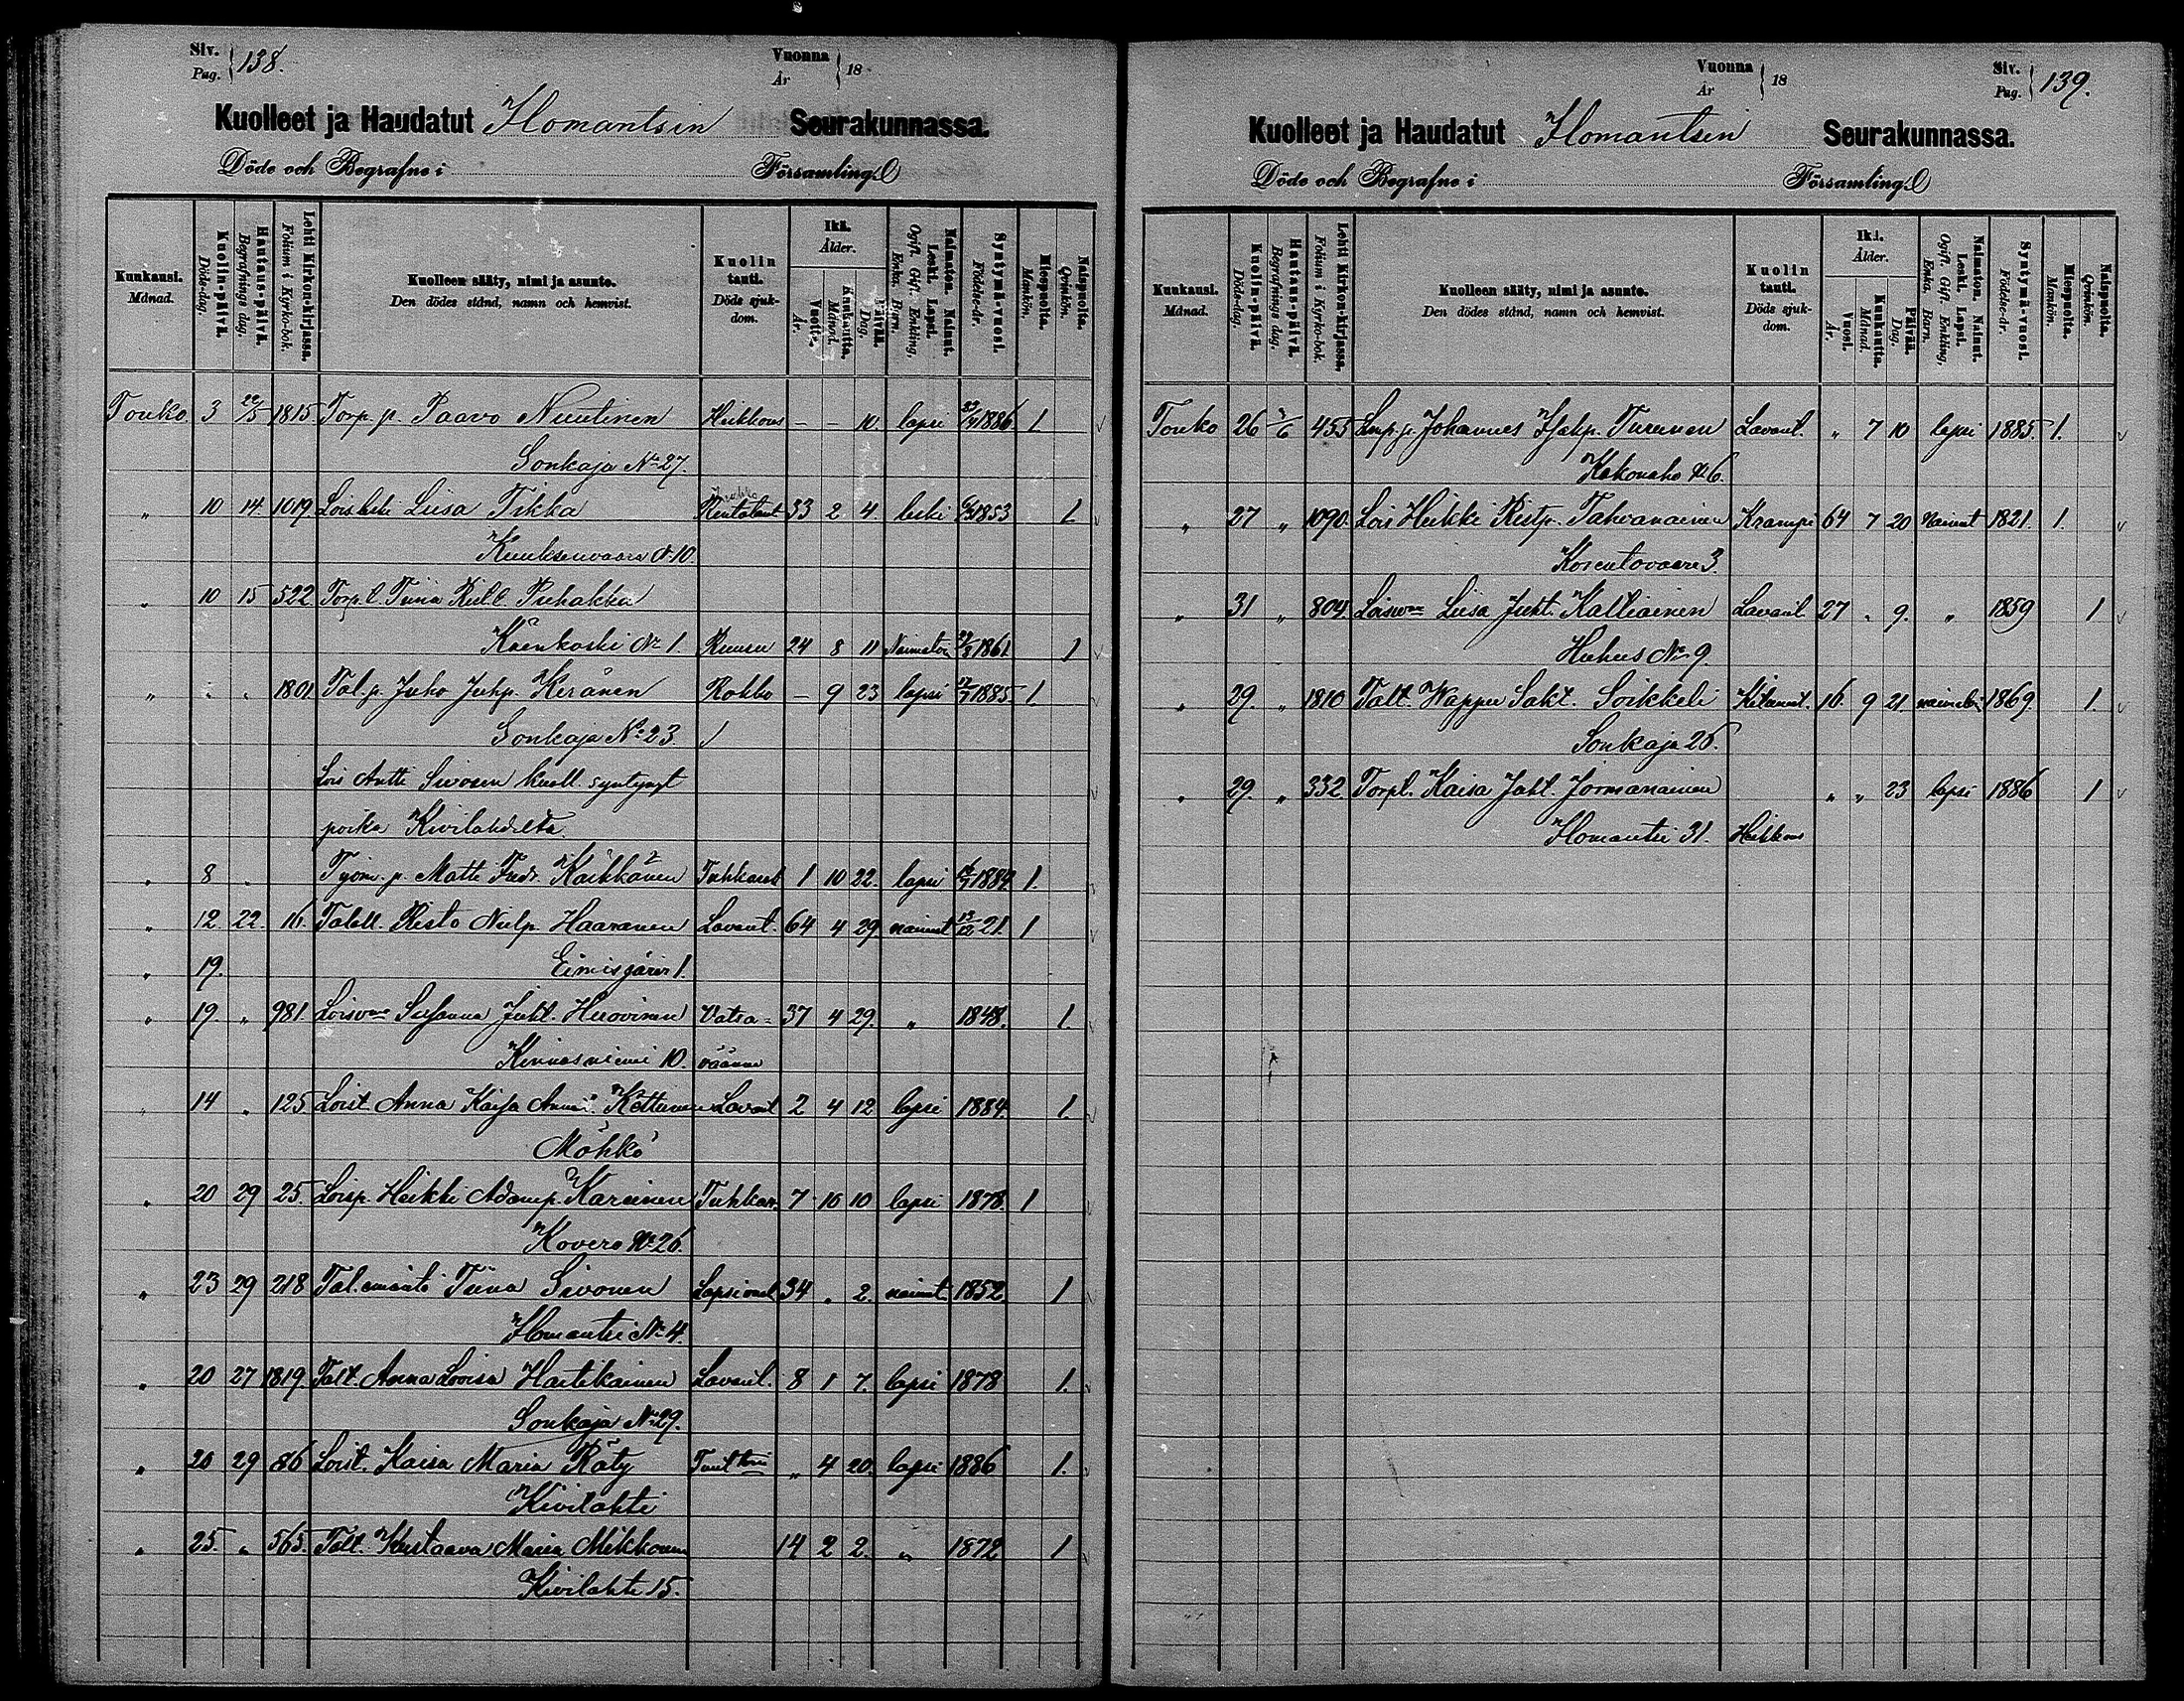 Siv. Pag. 138.
Vuonna År 18
Kuolleet ja Haudatut Ilomantsin Seurakunnassa.
Döde och Begrafne i Församling.
Kuukausi. Månad.
Kuolin-päivä. Döds-dag.
Hautaus-päivä. Begrafnings dag.
Lehti Kirkon-kirjassa. Folium i Kyrko-bok.
Kuolleen sääty, nimi ja asunto. Den dödes stånd, namn och hemvist.
Kuolin tauti. Döds sjukdom.
Ikä. Ålder.
Vuotta. År.
Kuukautta. Månad.
Päivää. Dag.
Naimaton. Nainut. Leski. Lapsi. Ogift. Gift. Enkling. Enka. Barn.
Syntymä-vuosi. Födelse-år.
Miespuolta. Mankön.
Naispuolta. Qvinkön.
Touko 3 22/5 1815 Torp. p. Paavo Nuutinen Heikkous – – 10 lapsi 1886 1.
Sonkaja No 27.
" 10 14. 1019. Lois leski Liisa Tikka 33 2 4. leski 1853 1
Kuuksenvaara N. 10.
" 10 15 522 Torp. t. Tiina Puhakka
Käenkoski No 1. Ruusu 24 8 11 Naimaton 1861 1
" " " 1801 Tal. p. Juho Juhp. Keränen Rokko – 9 23 lapsi 1885. 1.
Sonkaja No 23.
Lois Antti Sivosen kuoll. syntynyt
poika Kivilahdelta.
" 8 " Työm. p. Matti Fredr. Kaikkonen Tuhkarok 1 10 22. lapsi 1884 1.
" 12. 22. 16. Talall. Risto Nielp. Haaranen Lavant. 64 4 29 nainut 13/12 21. 1
" 19. Eimisjärvi 1.
" 19. " 981. Loisvmo Susanna Juht. Hirvonen Vatsa- 37 4 29. " 1848. 1.
Kinnasniemi 10. väänne
" 14 " 125 Loist. Anna Kaisa Kettunen Lavant 2 4 12 lapsi 1884. 1.
Möhkö
" 20 29 25. Loisp. Heikki Adamp. Karvinen Tuhkar. 7 10 10 lapsi 1878. 1
Kovero No 26.
" 23 29 218 Tal. emäntä Tiina Sivonen Lapsivuot 34 " 2. nainut. 1852. 1
Ilomantsi No 4.
" 20 27 1819. Talt. Anna Loviisa Hartikainen Lavant. 8 1 7. lapsi 1878 1.
Sonkaja No 29.
" 20 29 86 Loist. Kaisa Maria Räty " 4 20. lapsi 1886 1.
Kivilahti
" 25. " 565. Talt. Kustaava Maria Mikkonen 14 2 2. " 1872 1
Kivilahti 15.
Vuonna År 18
Siv. Pag. 139.
Kuolleet ja Haudatut Ilomantsin Seurakunnassa.
Döde och Begrafne i Församling.
Kuukausi. Månad.
Kuolin-päivä. Döds-dag.
Hautaus-päivä. Begrafnings dag.
Lehti Kirkon-kirjassa. Folium i Kyrko-bok.
Kuolleen sääty, nimi ja asunto. Den dödes stånd, namn och hemvist.
Kuolin tauti. Döds sjukdom.
Ikä. Ålder.
Vuosi. År.
Kuukautta. Månad.
Päivää. Dag.
Naimaton. Nainut. Leski. Lapsi. Ogift. Gift. Enkling, Enka. Barn.
Syntymä-vuosi. Födelse-år.
Miespuolta. Mankön.
Naispuolta. Qvinkön.
Touko 26 455 Johannes Turunen Lavant. " 7 10 lapsi 1885. 1.
Kakonaho No 6.
" 27 " 1090. Lois Heikki Ristp. Tahvanainen Krampi 64 7 20 Nainut 1821. 1.
Korentovaara 3.
" 31 " 804. Loisvmo Liisa Juht. Kalliainen Lavant. 27 " 9. " 1859 1
Huhus No 9.
" 29. " 1810 Talt. Wappu Sakt. Soikkeli 16. 9 21. naimaton 1869. 1.
Sonkaja 26.
" 29. " 332. Torpt. Kaisa Juht. Jormanainen " " 23 lapsi 1886 1
Ilomantsi 31. Heikkous